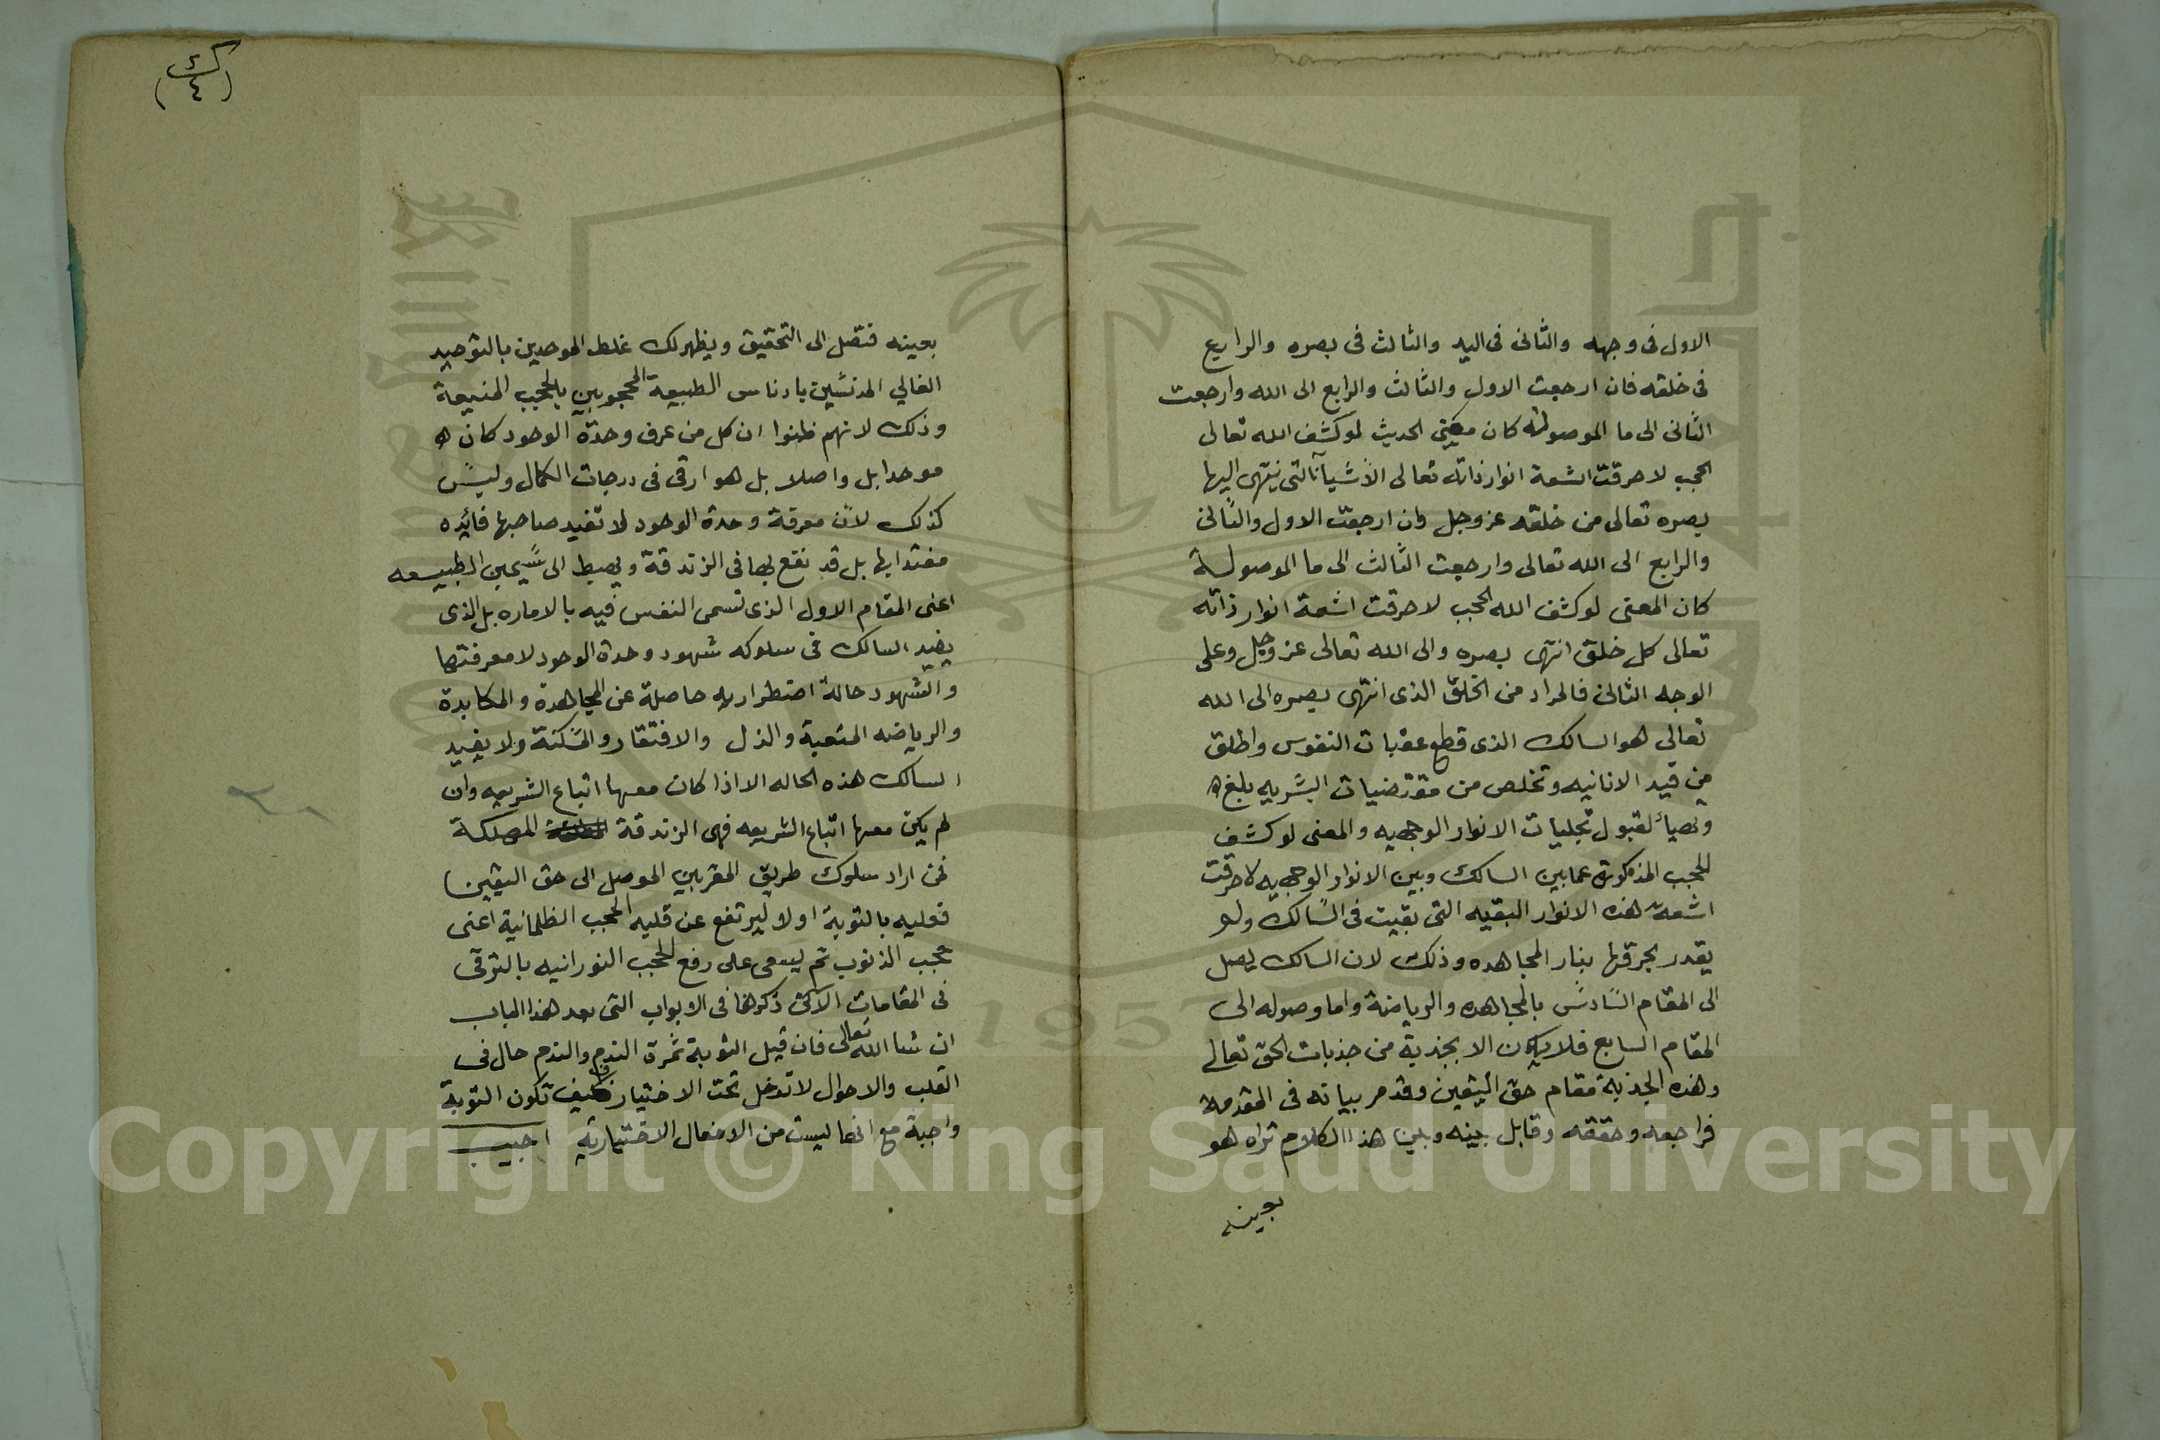 الاول فى وجهه والثانى فى اليد والثالث فى بصره والرابع
فى خلقه فان ارجعت الاول والثالث والرابع الى الله وارجعت
الثانى الى ما الموصولة كان معنى الحديث لو كشف الله تعالى
الحجب لاحرقت اشعة انوار ذاته تعالى الاشيآ التى ينتهى اليها
بصره تعالى من خلقه عز وجل وان ارجعت الاول والثانى
والرابع الى الله تعالى وارجعت الثالث الى ما الموصولة
كان المعنى لو كشف الله الحجب لاحرقت اشعة انوار ذاته
تعالى كل خلق انتهى بصره والى الله تعالى عز وجل وعلى
الوجه الثانى فالمراد من الخلق الذى انتهى بصره الى الله
تعالى هو السالك الذى قطع عقبات النفوس واطلق
من قيد الانانيه وتخلص من مقتضيات البشريه بلغ
وتهيأ لقبول تجليات الانوار الوجهيه والمعنى لو كشف
الحجب المذكورة عما بين السالك وبين الانوار الوجهيه لاحرقت
اشعة هذه الانوار البقيه التى بقيت فى السالك ولم
يقدر بحرقها بنار المجاهده وذلك لان السالك يصل
الى المقام السادس بالمجاهده والرياضة واما وصوله الى
المقام السابع فلا يكون الا بجذبة من جذبات الحق تعالى
وهذه الجذبة مقام حق اليقين وقد مر بيانه فى المقدمة
فراجعه وحققه وقابل بينه وبين هذا الكلام تراه هو
بعينه
بعينه فتصل الى التحقيق ويظهر لك غلط الموحدين بالتوحيد
الغالي المدنسين بادناس الطبيعة المحجوبين بالحجب المنيعة
وذلك لانهم ظنوا ان كل من عرف وحدة الوحود كان
موحدا بل واصلا بل هو ارقى فى درجات الكمال وليس
كذلك لان معرفة وحدة الوحود لا تفيد صاحبها فائيده
مفتدا بها بل قد تقع بها فى الزندقة ويهبط الى سجين الطبيعه
اعنى المقام الاول الذى تسمى النفس فيه بالاماره بل الذى
يفيد السالك فى سلوكه شهود وحدة الوحود لا معرفتها
والشهود حالة اضطراريه حاصلة عن المجاهدة والمكابدة
والرياضه المتعبة والذل والافتقار والمسكنة ولا يفيد
السالك هذه الحاله الا اذا كان معها اتباع الشريعه وان
لم يكن معها اتباع الشريعه فهى الزندقة المهلكة
فمن اراد سلوك طريق المقربين الموصل الى حق اليقين
فعليه بالتوبة اولا ليرتفع عن قلبه الحجب الظلمانية اعنى
حجب الذنوب ثم ليسعى على رفع الحجب النورانيه بالترقى
فى المقامات الآتى ذكرها فى الابواب التى بعد هذا الباب
ان شا الله تعالى فان قيل التوبة ثمرة الندم والندم حال فى
القلب والاحوال لا تدخل تحت الاختيار فكيف تكون التوبة
واجبة مع انها ليست من الافعال الاختياريه اجيب
Copyright © King Saud University
1957